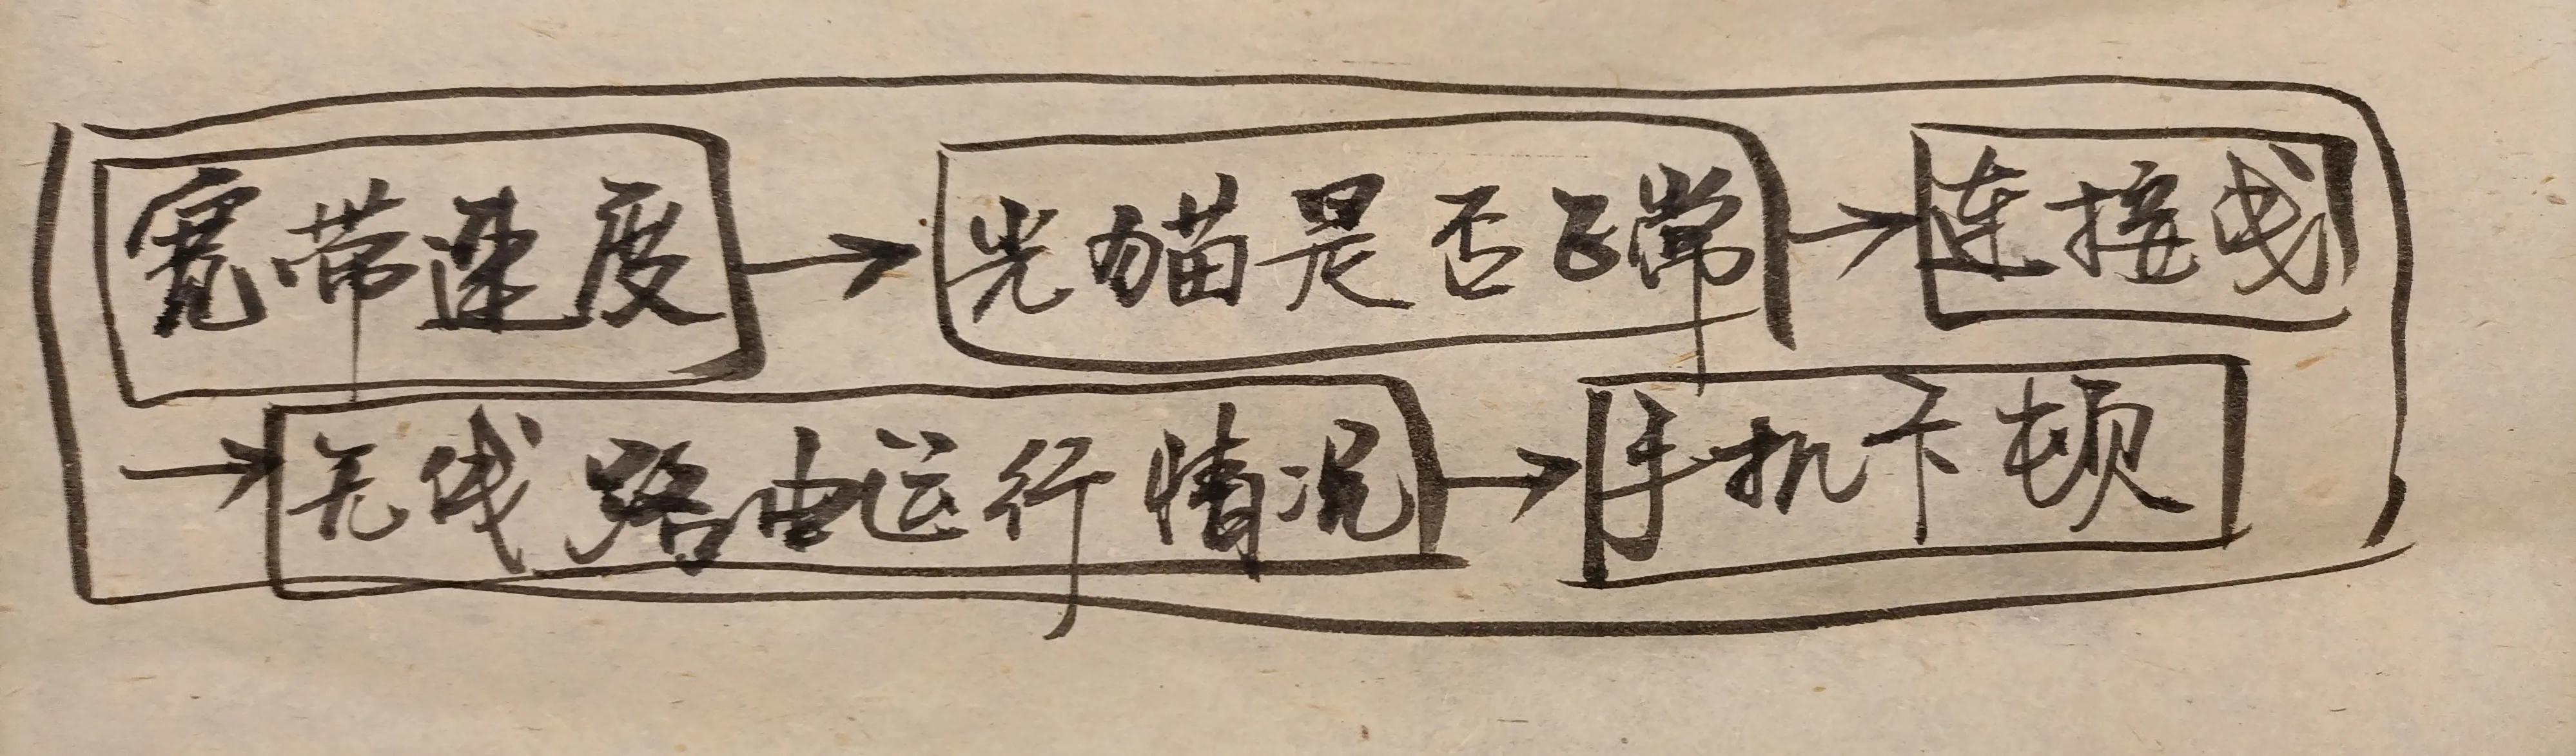 宽带速度→光猫是否正常→连接线
→无线路由运行情况→手机卡顿